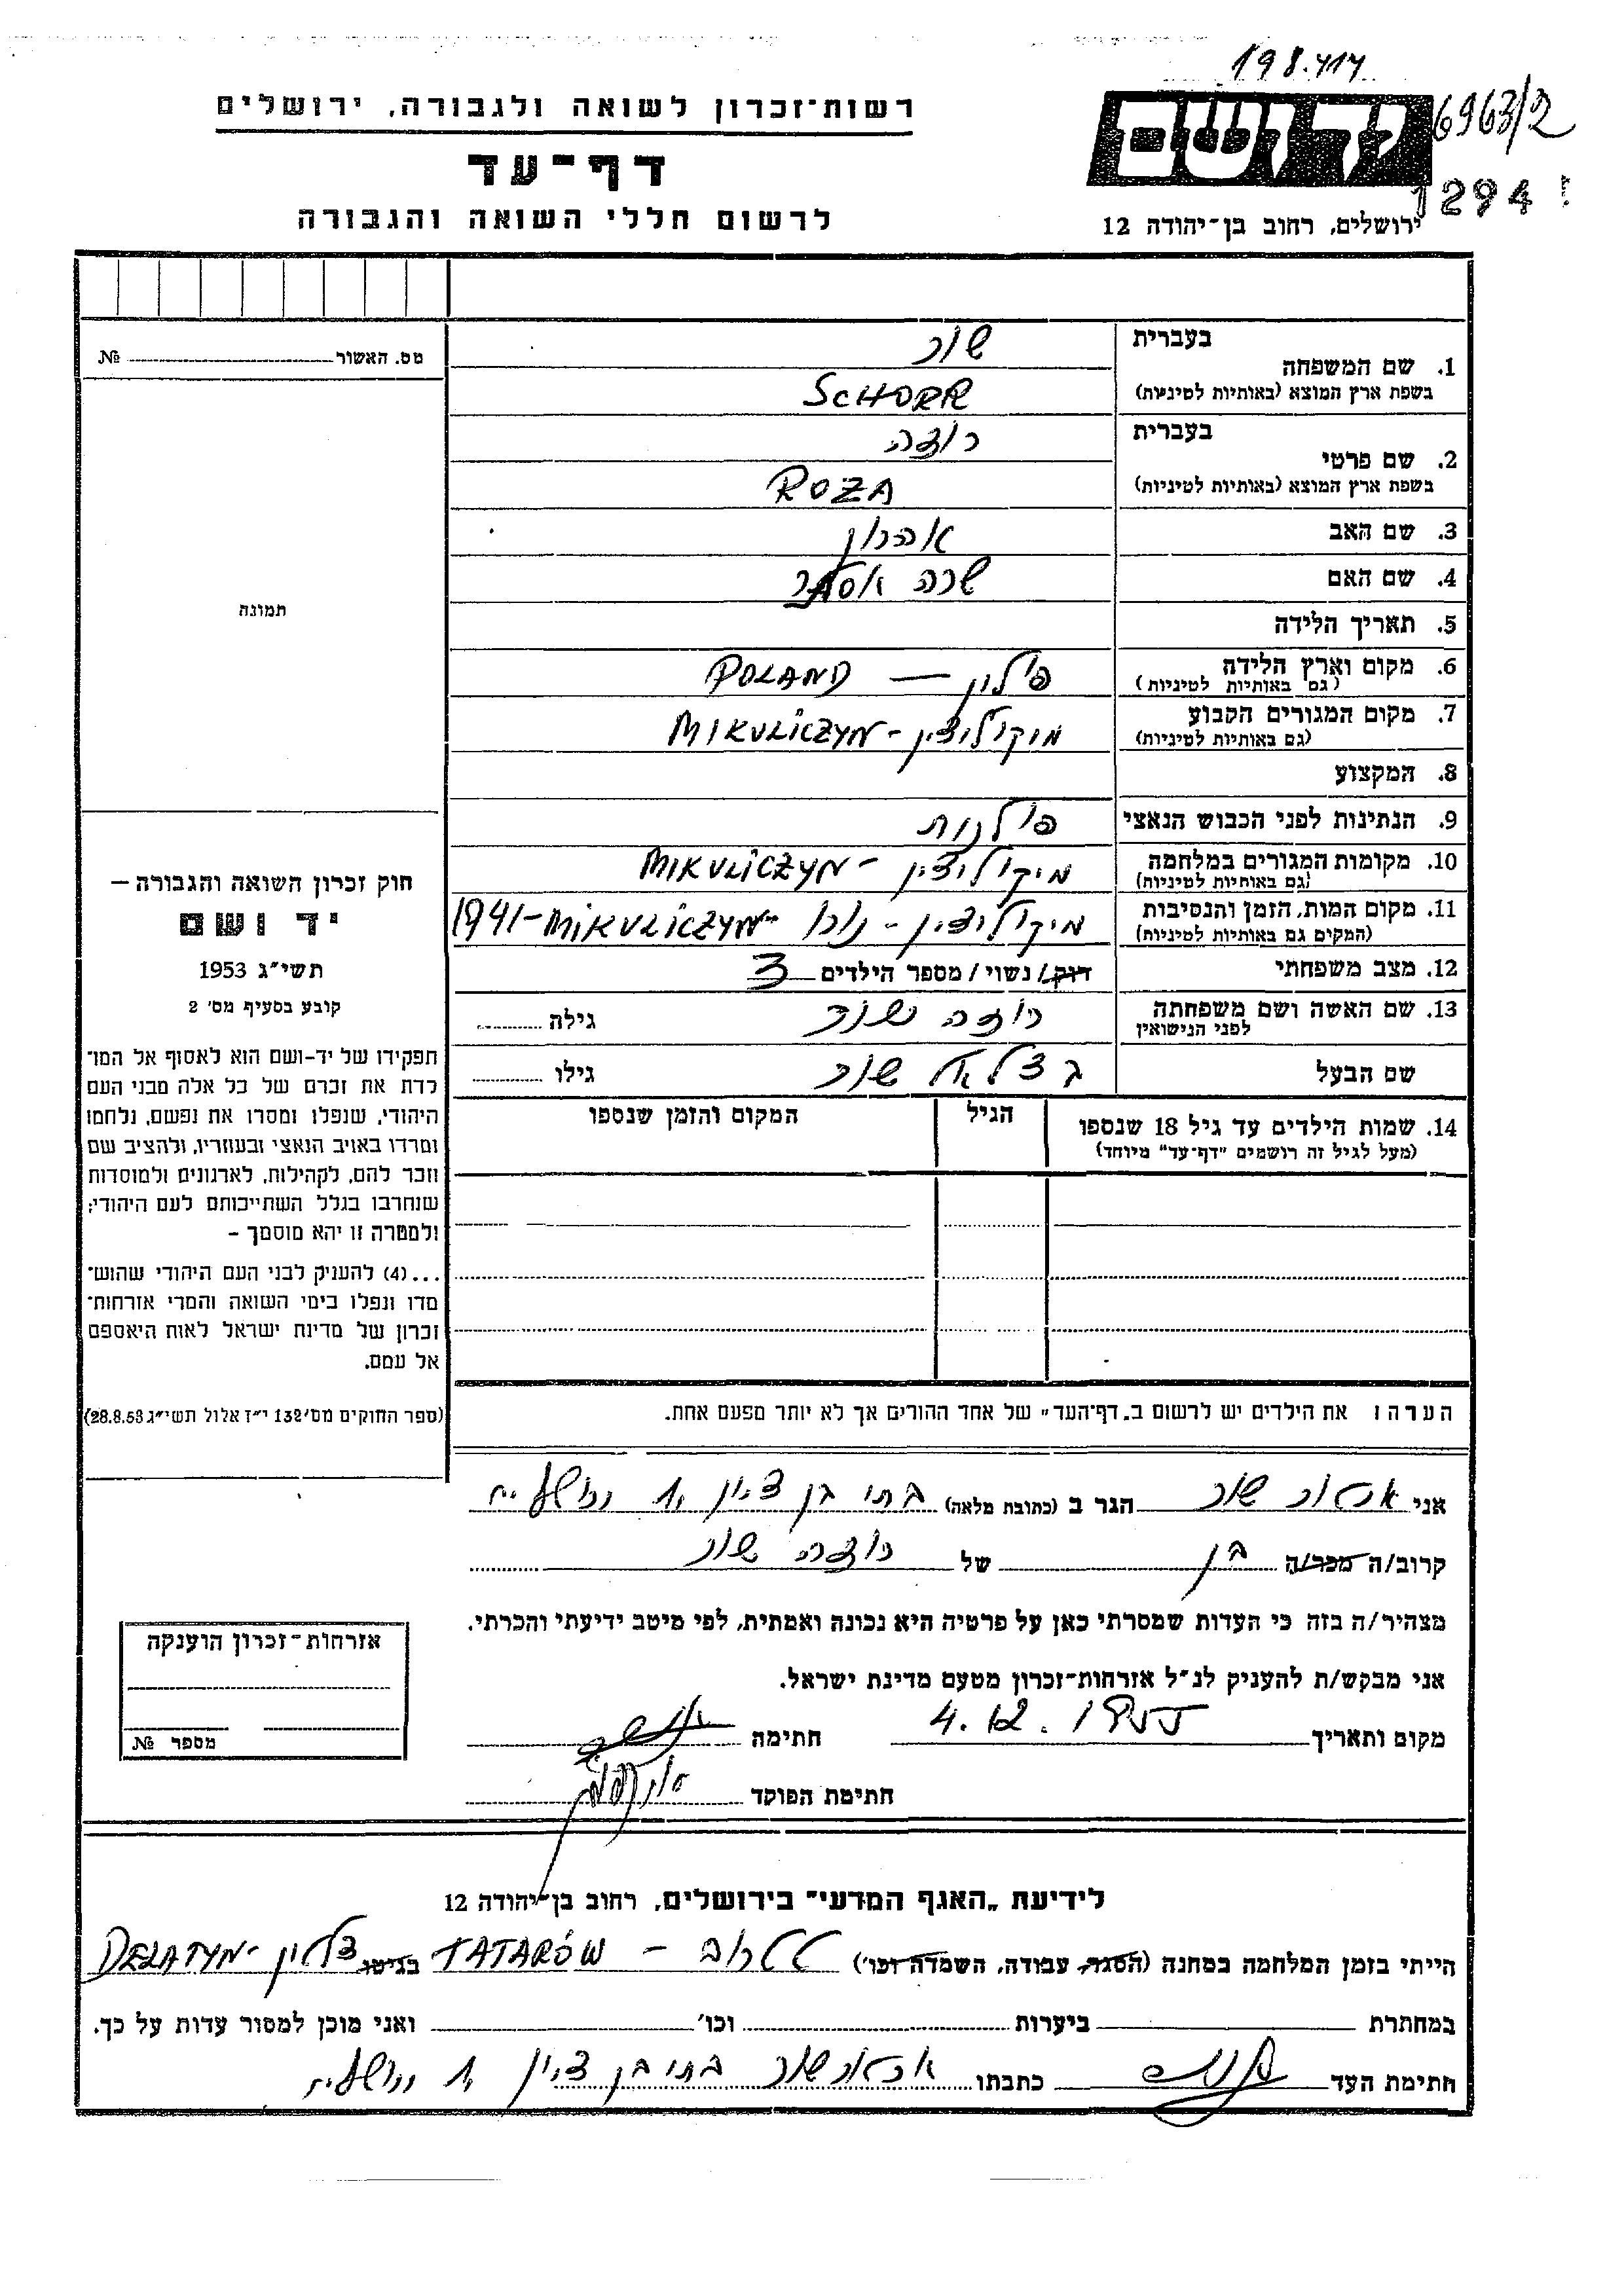 198.414
רשות־זכרון לשואה ולגבורה, ירושלים
6963/2
דף־עד
יד ושם
12941
לרשום חללי השואה והגבורה
ירושלים, רחוב בן־יהודה 12
בעברית
שור
1. שם המשפחה
בשפת ארץ המוצא (באותיות לטיניות)
SCHORR
בעברית
רוזה
2. שם פרטי
בשפת ארץ המוצא (באותיות לטיניות)
ROZA
3. שם האב
אהרון
4. שם האם
שרה אסתר
5. תאריך הלידה
6. מקום וארץ הלידה
(גם באותיות לטיניות)
פולין — POLAND
7. מקום המגורים הקבוע
(גם באותיות לטיניות)
מיקוליצין - MIKULICZYN
8. המקצוע
9. הנתינות לפני הכבוש הנאצי
פולנית
10. מקומות המגורים במלחמה
(גם באותיות לטיניות)
מיקוליצין - MIKULICZYN
11. מקום המות, הזמן והנסיבות
(המקום גם באותיות לטיניות)
מיקוליצין - 1941 - MIKULICZYN
12. מצב משפחתי
רווק/ נשוי / מספר הילדים 3
13. שם האשה ושם משפחתה
לפני הנישואין
רוזה שור
גילה
שם הבעל
בצלאל שור
גילו
14. שמות הילדים עד גיל 18 שנספו
(מעל לגיל זה רושמים "דף־עד" מיוחד)
הגיל
המקום והזמן שנספו
הערה: את הילדים יש לרשום ב„דף־העד" של אחד ההורים אך לא יותר מפעם אחת.
מס. האשור № 
תמונה
חוק זכרון השואה והגבורה —
יד ושם
תשי״ג 1953
קובע בסעיף מס׳ 2
תפקידו של יד-ושם הוא לאסוף אל המו־
לדת את זכרם של כל אלה מבני העם
היהודי, שנפלו ומסרו את נפשם, נלחמו
ומרדו באויב הנאצי ובעוזריו, ולהציב שם
וזכר להם, לקהילות, לארגונים ולמוסדות
שנחרבו בגלל השתייכותם לעם היהודי;
ולמטרה זו יהא מוסמך –
...(4) להעניק לבני העם היהודי שהוש־
מדו ונפלו בימי השואה והמרי אזרחות־
זכרון של מדינת ישראל לאות היאספם
אל עמם.
(ספר החוקים מס׳ 132 י״ז אלול תשי״ג 28.8.53)
אני שור הגר ב (כתובת מלאה) בתי בן ציון 1, ירושלים
קרוב/ה מכר/ה בן של רוזה שור
מצהיר/ה בזה כי העדות שמסרתי כאן על פרטיה היא נכונה ואמתית, לפי מיטב ידיעתי והכרתי.
אני מבקש/ת להעניק לנ״ל אזרחות־זכרון מטעם מדינת ישראל.
מקום ותאריך 4.12.1955 חתימה
חתימת הפוקד
אזרחות־זכרון הוענקה
מספר №
לידיעת „האגף המדעי" בירושלים, רחוב בן־יהודה 12
הייתי בזמן המלחמה במחנה (הסגר, עבודה, השמדה וכו׳) טטרוב - TATARÓW בגיטו דלטין - DELATYN
במחתרת ביערות וכו׳ ואני מוכן למסור עדות על כך.
חתימת העד כתבתו שור בתי בן ציון 1, ירושלים